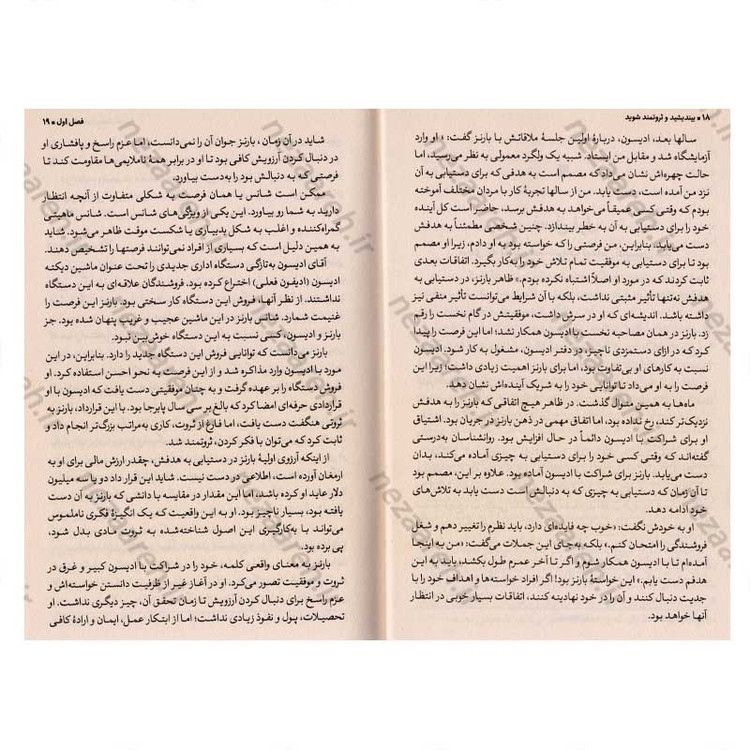 ۱۸ ▪ بیندیشید و ثروتمند شوید
سالها بعد، ادیسون، دربارهٔ اولین جلسهٔ ملاقاتش با بارنز گفت: « او وارد
آزمایشگاه شد و مقابل من ایستاد. شبیه یک ولگرد معمولی به نظر می‌رسید، اما
حالت چهره‌اش نشان می‌داد که مصمم است به هدفی که برای دستیابی به آن
نزد من آمده است، دست یابد. من از سالها تجربهٔ کار با مردان مختلف آموخته
بودم که وقتی کسی عمیقاً می‌خواهد به هدفش برسد، حاضر است کل آینده
خود را برای دستیابی به آن به خطر بیندازد. چنین شخصی مطمئناً به هدفش
دست می‌یابد. بنابراین، من فرصتی را که خواسته بود به او دادم، زیرا او مصمم
بود تا برای دستیابی به موفقیت تمام تلاش خود را به‌کار بگیرد. اتفاقات بعدی
ثابت کردند که در مورد او اصلاً اشتباه نکرده بودم.» ظاهر بارنز، در دستیابی به
هدفش نه‌تنها تأثیر مثبتی نداشت، بلکه با آن شرایط می‌توانست تأثیر منفی نیز
داشته باشد. اندیشه‌ای که او در سرش داشت، موفقیتش در گام نخست را رقم
زد. بارنز در همان مصاحبه نخست با ادیسون همکار نشد؛ اما این فرصت را پیدا
کرد که در ازای دستمزدی ناچیز، در دفتر ادیسون، مشغول به کار شود. ادیسون
نسبت به کارهای او بی‌تفاوت بود، اما برای بارنز اهمیت زیادی داشت؛ زیرا این
فرصت را به او می‌داد تا توانایی خود را به شریک آینده‌اش نشان دهد.
ماه‌ها به همین منوال گذشت. در ظاهر هیچ اتفاقی که بارنز را به هدفش
نزدیک‌تر کند، رخ نداده بود، اما اتفاق مهمی در ذهن بارنز در جریان بود. اشتیاق
او برای شراکت با ادیسون دائماً در حال افزایش بود. روانشناسان به‌درستی
گفته‌اند که وقتی کسی خود را برای دستیابی به چیزی آماده می‌کند، بدان
دست می‌یابد. بارنز برای شراکت با ادیسون آماده بود. علاوه بر این، مصمم بود
تا آن زمان که دستیابی به چیزی که به دنبالش است دست یابد به تلاش‌های
خود ادامه دهد.
او به خودش نگفت: «خوب چه فایده‌ای دارد، باید نظرم را تغییر دهم و شغل
فروشندگی را امتحان کنم.» بلکه به‌جای این جملات می‌گفت: «من به اینجا
آمده‌ام تا با ادیسون همکار شوم و اگر تا آخر عمرم طول بکشد، باید به این
هدفم دست یابم.» این خواستهٔ بارنز بود! اگر افراد خواسته‌ها و اهداف خود را با
جدیت دنبال کنند و آن را در خود نهادینه کنند، اتفاقات بسیار خوبی در انتظار
آنها خواهد بود.
فصل اول ▪ ۱۹
شاید در آن زمان، بارنز جوان آن را نمی‌دانست، اما عزم راسخ و پافشاری او
در دنبال کردن آرزویش کافی بود تا او در برابر همهٔ ناملایمی‌ها مقاومت کند تا
فرصتی که به دنبالش بود را به‌دست بیاورد.
ممکن است شانس یا همان فرصت به شکلی متفاوت از آنچه انتظار
دارید به شما رو بیاورد. این یکی از ویژگی‌های شانس است. شانس ماهیتی
گمراه‌کننده و اغلب به شکل بدبیاری یا شکست موقت ظاهر می‌شود. شاید
به همین دلیل است که بسیاری از افراد نمی‌توانند فرصتها را تشخیص دهند.
آقای ادیسون به‌تازگی دستگاه اداری جدیدی را تحت عنوان ماشین دیکته
ادیسون (ادیفون فعلی) اختراع کرده بود. فروشندگان علاقه‌ای به این دستگاه
نداشتند. از نظر آنها، فروش این دستگاه کار سختی بود. بارنز این فرصت را
غنیمت شمارد. شانس بارنز در این ماشین عجیب و غریب پنهان شده بود. جز
بارنز و ادیسون، کسی نسبت به این دستگاه خوش بین نبود.
بارنز می‌دانست که توانایی فروش این دستگاه جدید را دارد. بنابراین، در این
مورد با ادیسون وارد مذاکره شد و از این فرصت به نحو احسن استفاده کرد. او
فروش دستگاه را بر عهده گرفت و به چنان موفقیتی دست یافت که ادیسون با او
قراردادی حرفه‌ای امضا کرد که بالغ بر سی سال پابرجا بود. با این قرارداد، بارنز به
ثروتی هنگفت دست یافت، اما فارغ از ثروت، کاری به‌مراتب بزرگ‌تر انجام داد و
ثابت کرد که می‌توان با فکر کردن، ثروتمند شد.
از اینکه آرزوی اولیهٔ بارنز در دستیابی به هدفش، چقدر ارزش مالی برای او به
ارمغان آورده است، اطلاعی در دست نیست. شاید این قرار داد دو یا سه میلیون
دلار عاید او کرده باشد، اما این مقدار در مقایسه با دانشی که بارنز به آن دست
یافته بود، بسیار ناچیز بود، او به این واقعیت که یک انگیزهٔ فکری ناملموس
می‌تواند با به‌کارگیری این اصول شناخته‌شده به ثروت مادی بدل شود،
پی برده بود.
بارنز به معنای واقعی کلمه، خود را در شراکت با ادیسون کبیر و غرق در
ثروت و موفقیت تصور می‌کرد. او در آغاز غیر از ظرفیت دانستن خواسته‌اش و
عزم راسخ برای دنبال کردن آرزویش تا زمان تحقق آن، چیز دیگری نداشت. او
تحصیلات، پول و نفوذ زیادی نداشت؛ اما از ابتکار عمل، ایمان و ارادهٔ کافی